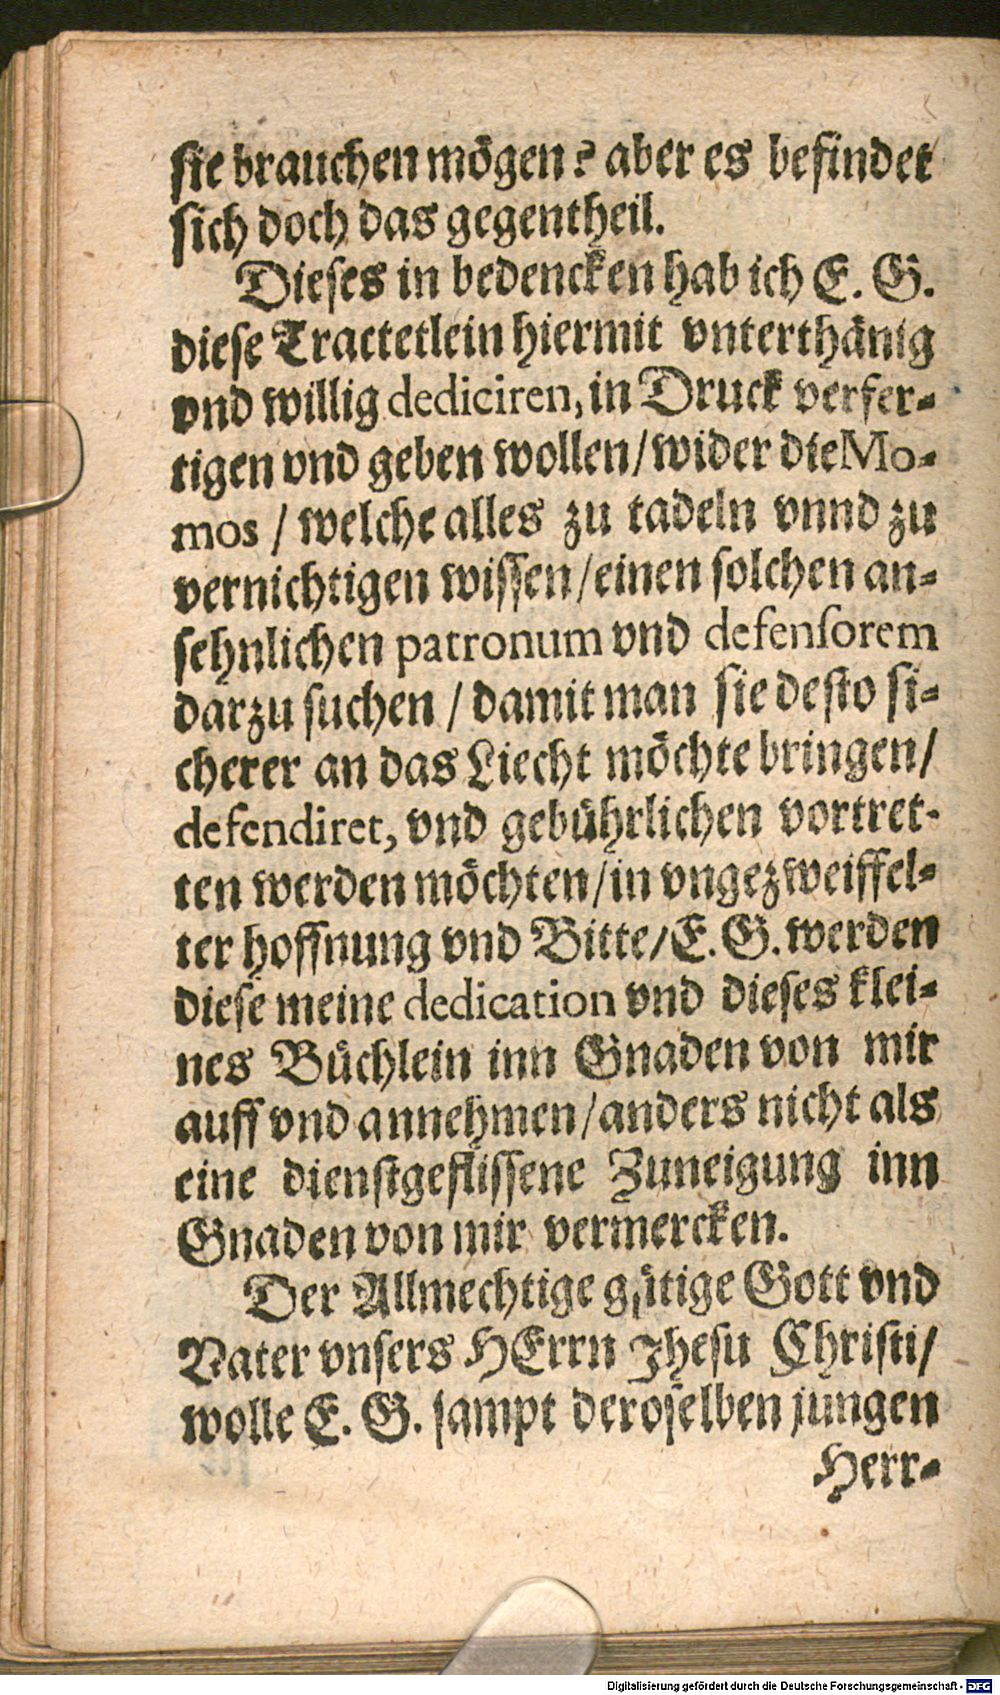 sie brauchen mögen? aber es befindet
sich doch das gegentheil.
Dieses in bedencken hab ich E. G.
diese Tractetlein hiermit vnterthänig
vnd willig dediciren, in Druck verfer-
tigen vnd geben wollen/wider die Mo-
mos / welche alles zu tadeln vnnd zu
vernichtigen wissen/einen solchen an-
sehnlichen patronum vnd defensorem
darzu suchen / damit man sie desto si-
cherer an das Liecht möchte bringen/
defendiret, vnd gebührlichen vortret-
ten werden möchten/in vngezweiffel-
ter hoffnung vnd Bitte/E. G. werden
diese meine dedication vnd dieses klei-
nes Büchlein inn Gnaden von mir
auff vnd annehmen/anders nicht als
eine dienstgeflissene Zuneigung inn
Gnaden von mir vermercken.
Der Allmechtige gütige Gott vnd
Vater vnsers HErrn Jhesu Christi/
wolle E. G. sampt deroselben jungen
Herr-
Digitalisierung gefördert durch die Deutsche Forschungsgemeinschaft - DFG